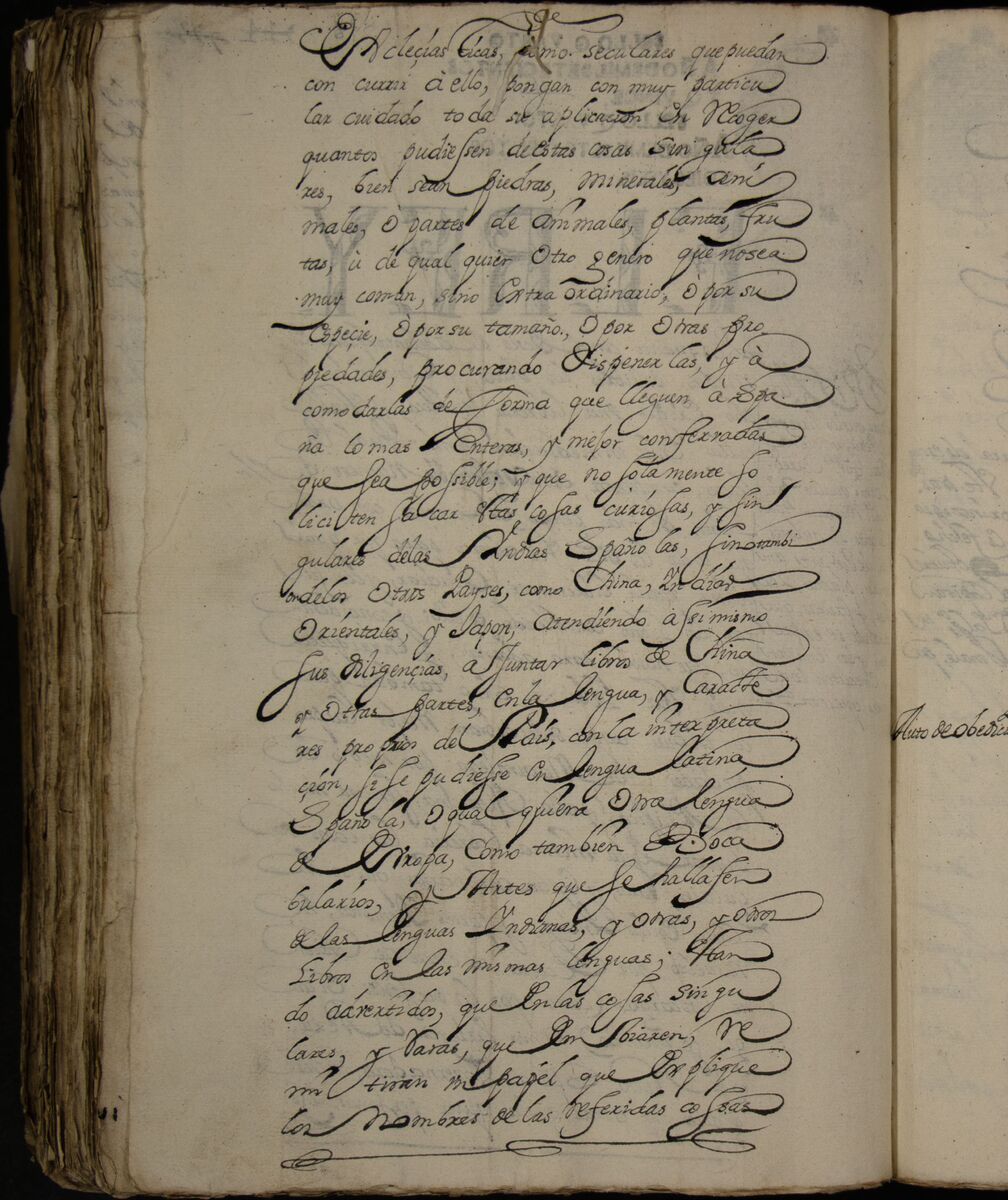 Ecleçiasticas, como seculares que puedan
con currir à ello, pongan con muy particu
lar cuidado toda su aplicacion en Recoger
quantos pudiessen de estas cosas singula
res, bien sean piedras, minerales, ani
males, ò partes de animales, plantas, fru
tas, ù de qual quier otro genero que no sea
muy comun, sino extra ordinario, ò por su
Espeçie, ò por su tamaño, ò por otras pro
piedades, procurando disponer las, y à
comodarlas de forma que lleguen à Espa
ña lo mas Enteras, y mejor conserradas
que sea possible; y que no solamente so
liciten sacar Estas cosas curiosas, y sin
gulares delas Yndias Españolas, sino tambi
en delos otros Payses, como China, Yndias
Orientales, y Japon; atendiendo à ssi mismo
sus diligençias, à Juntar libros de China
y otras partes, en la lengua, y Caracte
res proprios del Pais, con la interpreta
çion, si se pudiesse en lengua latina,
Española, o qual quiera otra lengua
de Europa, Como tambien Boca
bularios, y Artes que se hallasen
de las lenguas Yndianas, y otras, y otros
Libros en las mismas lenguas; Estan
do adxertidos, que En las cosas singu
lares, y Raras, que Em biaren, re
mi tiran un papel que Explique
los Nombres de las referidas cossas
Auto de obedici